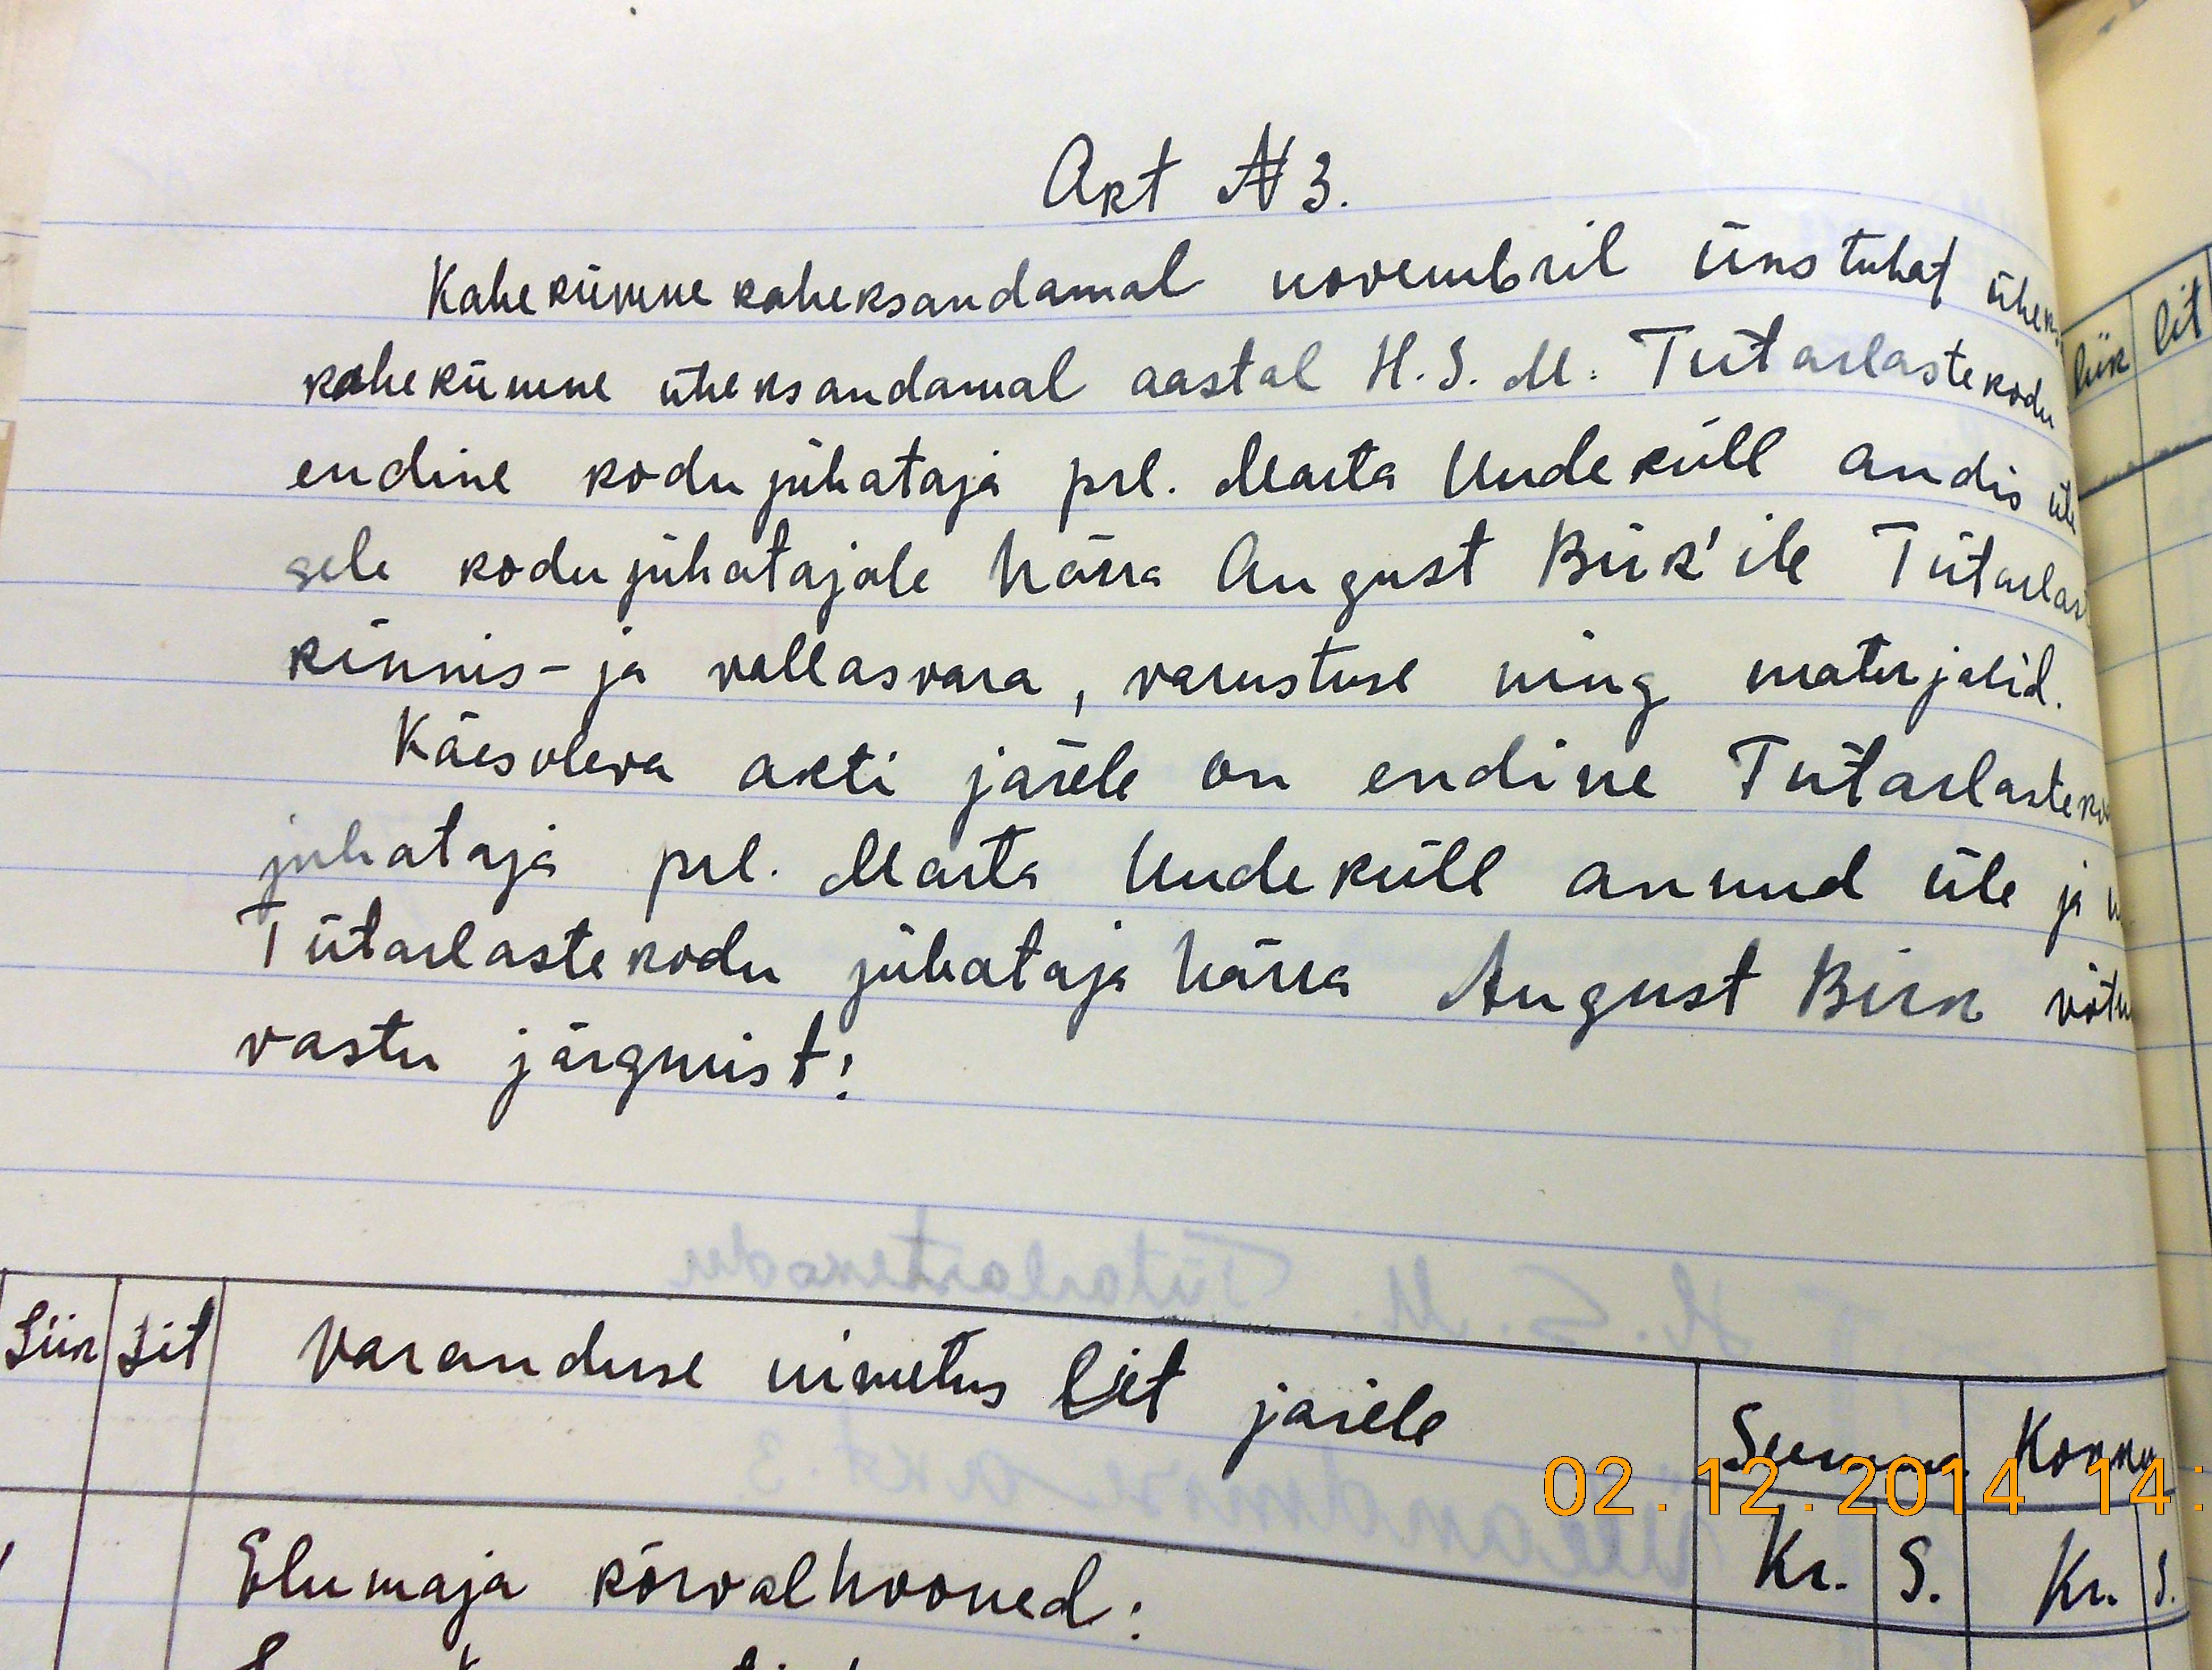 Akt N 3.
Kahekümne kaheksandamal novembril üks tuhat üheks
kahekümne üheksandamal aastal H. S. M. Tütarlastekodu
endine kodujuhataja prl. Marta Uudeküll andis üle
sele kodujuhatajale härra August Birk'ile Tütarlast
kinnis- ja vallasvara, varustuse ning materjalid.
Käesoleva akti järele on endine Tütarlasteko
juhataja prl. Marta Uudeküll annud üle ja
Tütarlastekodu juhataja härra August Birk võtn
vastu järgmist:
Liik Lit Varanduse nimetus Lit järele Summa Kokku
Kr. S. Kr. S.
Elumaja kõrvalhooned:
liik lit
02.12.2014 14: